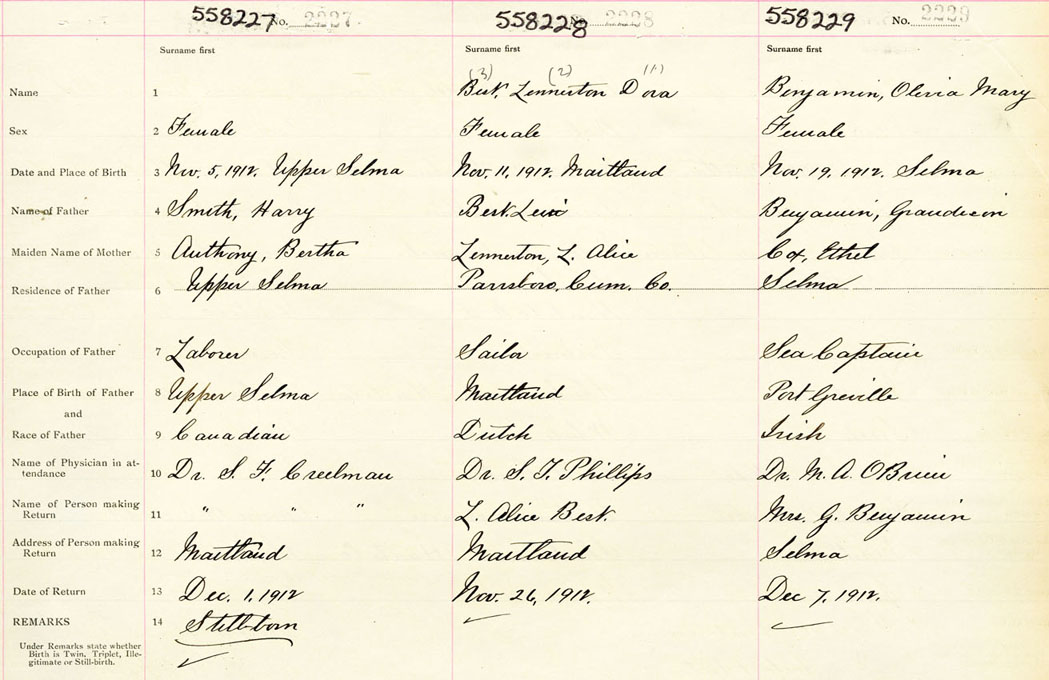 558227 No. 2227. 558228 No. 2228 558229 No. 2229
Surname first Surname first Surname first
(3) (2) (1)
Name 1 Best, Lennerton Dora Benjamin, Olivia Mary
Sex 2 Female Female Female
Date and Place of Birth 3 Nov. 5, 1912. Upper Selma Nov. 11, 1912. Maitland Nov. 19, 1912. Selma
Name of Father 4 Smith, Harry Best. Levi Benjamin, Grandison
Maiden Name of Mother 5 Anthony, Bertha Lennerton, L. Alice Cox, Ethel
Residence of Father 6 Upper Selma Parrsboro, Cum. Co. Selma
Occupation of Father 7 Laborer Sailor Sea Captain
Place of Birth of Father 8 Upper Selma Maitland Port Greville
and
Race of Father 9 Canadian Dutch Irish
Name of Physician in at-
tendance 10 Dr. S. F. Creelman Dr. S. T. Phillips Dr. M. A. O'Brien
Name of Person making
Return 11 " " " L. Alice Best. Mrs. G. Benjamin
Address of Person making
Return 12 Maitland Maitland Selma
Date of Return 13 Dec. 1, 1912 Nov. 26, 1912. Dec 7, 1912.
REMARKS 14 Still-born
Under Remarks state whether
Birth is Twin, Triplet, Ille-
gitimate or Still-birth.